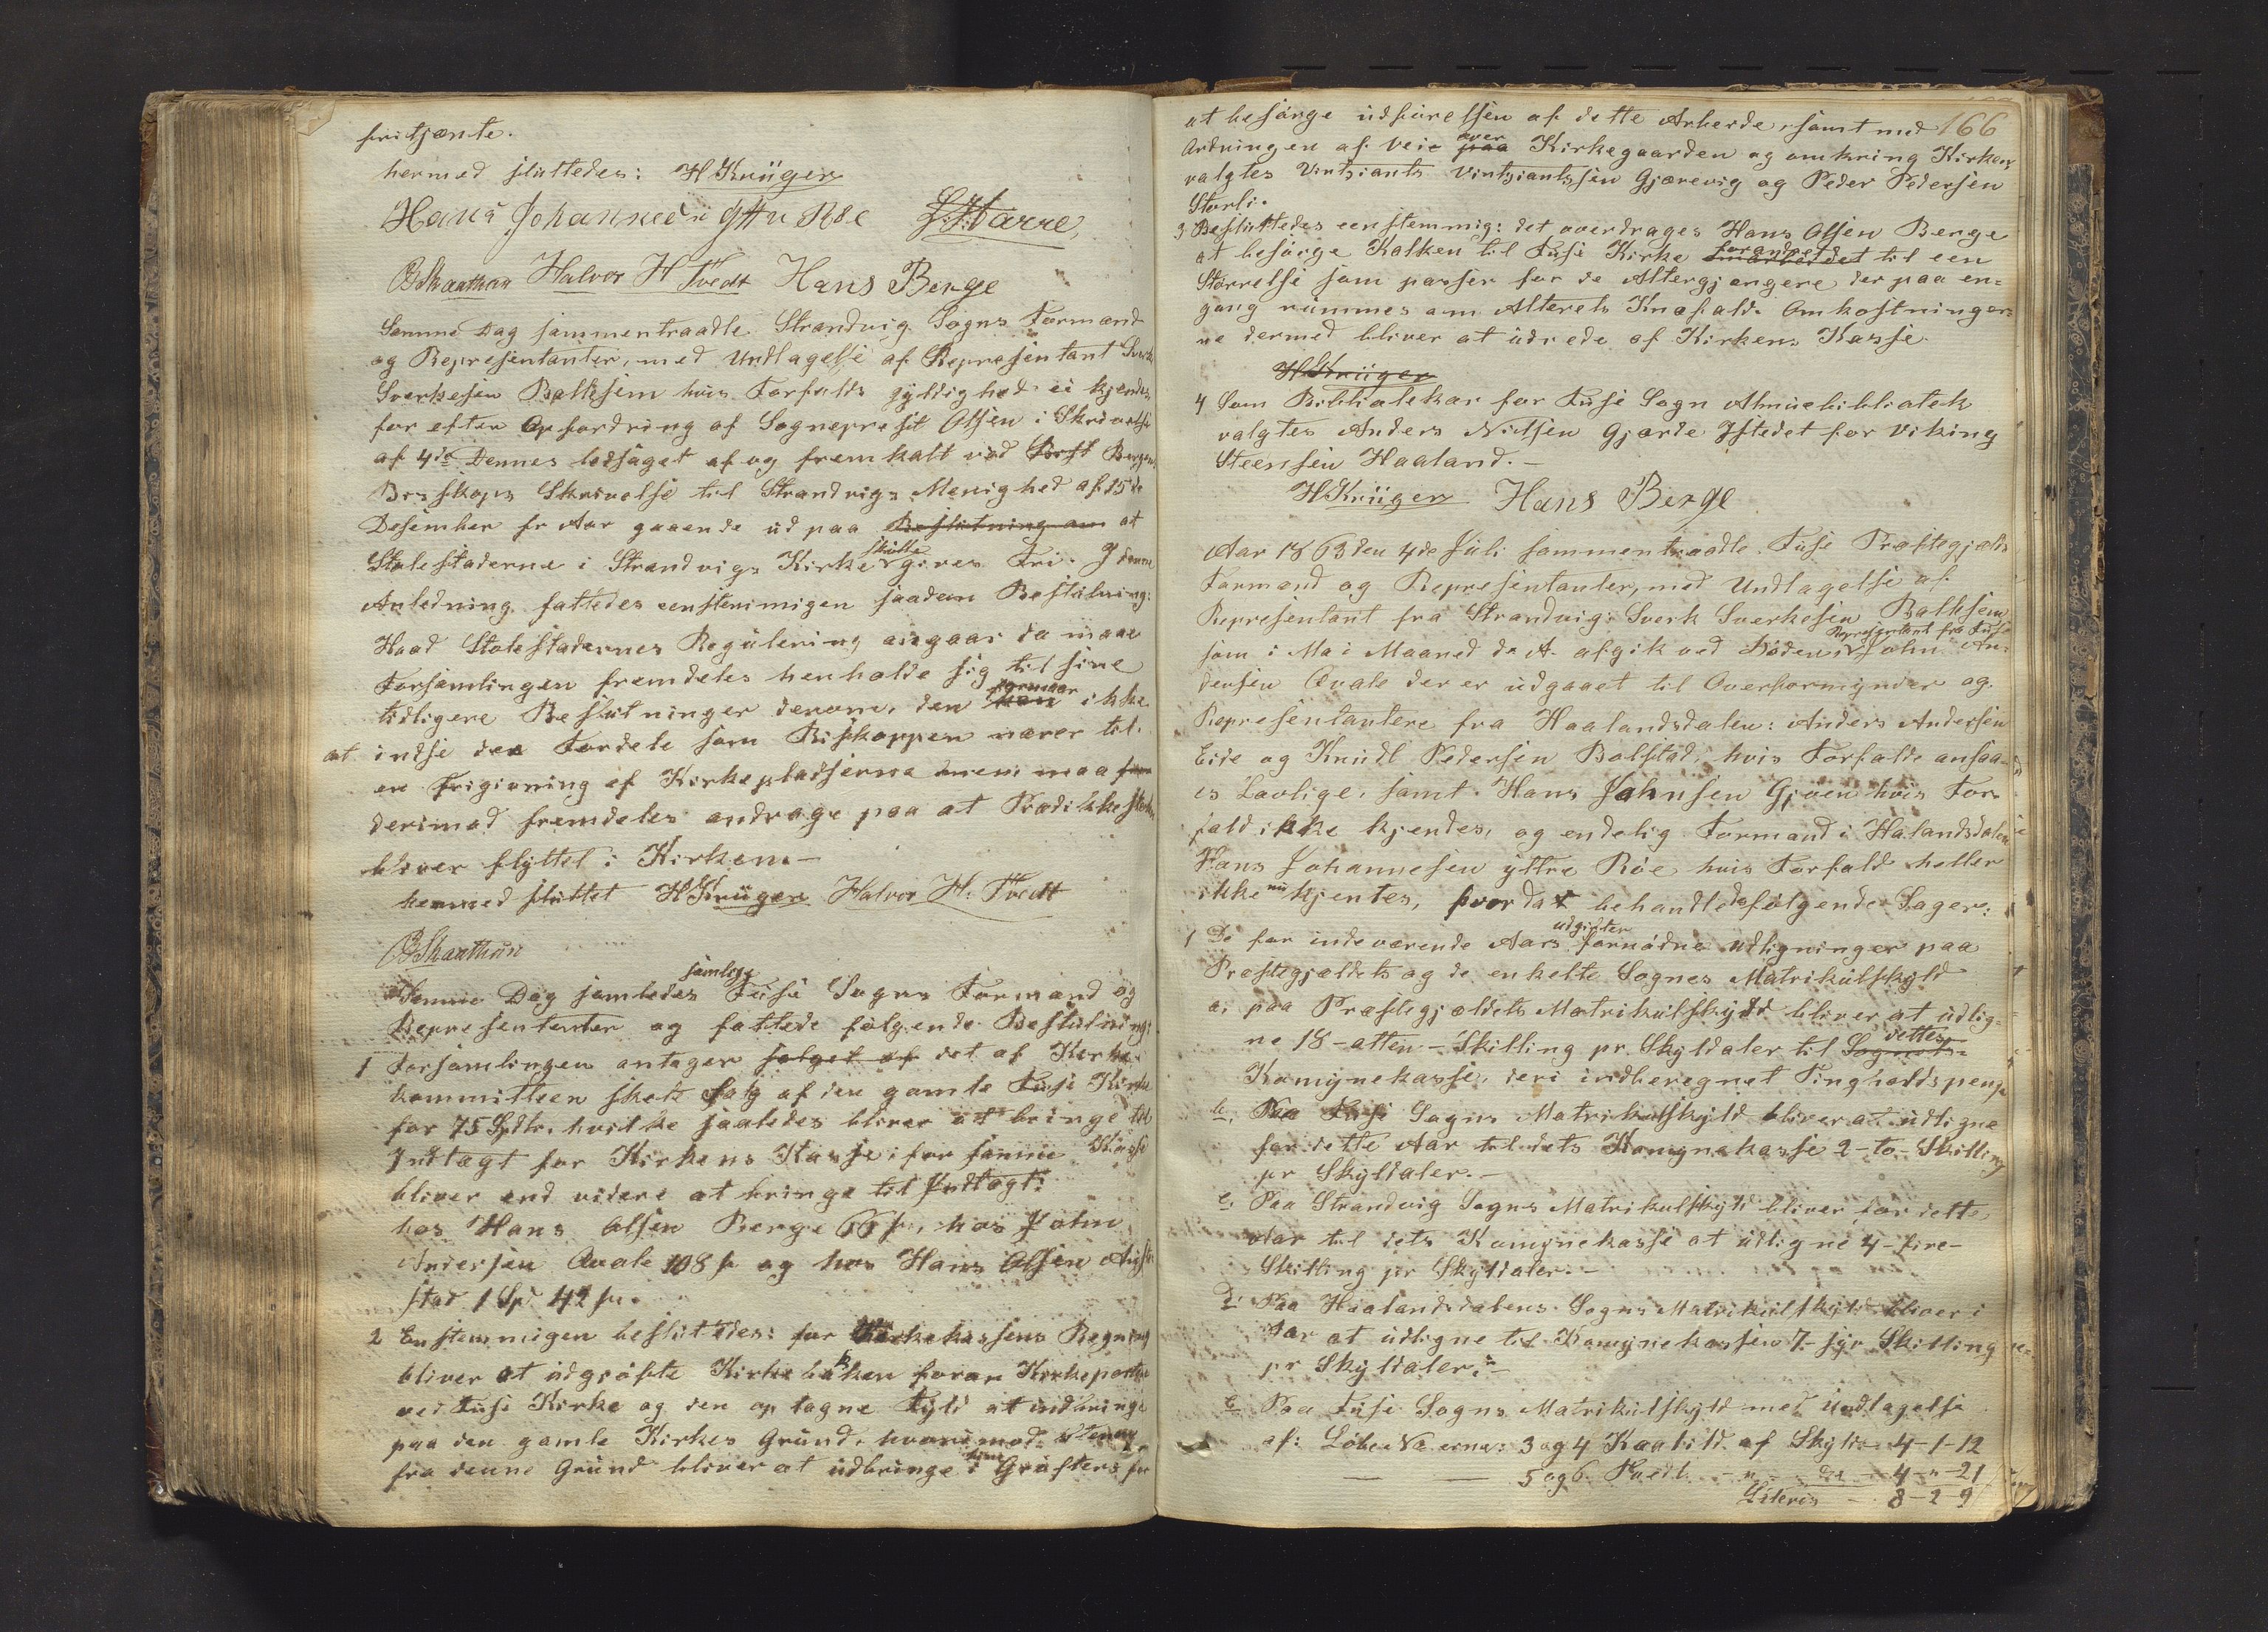 fritjente.
hermed sluttedes: H Krüger
Hans Johannesen Ytre Røe
O Skaathun Halvor H Tvedt Hans Berge
Samme Dag sammentraadte Strandvig Sogns Formænd
og Representanter, med Undtagelse af Representant Sverk
Sverkesen Balksem hvis Forfalds gyldighed ei kjendes
for efter Opfordring af Sogneprest Olsen i Skrivelse
af 4de Dennes ledsaget af og fremkalt ved Bergens
Bisskops Skrivelse til Strandvigs Menighed af 15de
Desember f Aar gaaende ud paa Beslutning om at
Stolestaderne i Strandvigs Kirke skulle gives Fri. I denne
Anledning fattedes eenstemmigen saadan Beslutning:
Hvad Stolestadernes Regulering angaar da maae
Forsamlingen fremdeles henholde sig til sine
tidligere Beslutninger derom, den kan formaar ikke
at indse den Fordele som Biskoppen nærer til
en Frigivning af Kirkepladserne men maa
derimod fremdeles andrage paa at Prædikkestolen
bliver flyttet i Kirken.-
hermed sluttet H Krüger Halvor H. Tvedt
O Skaathun
Samme Dag samledes samlige Fuse Sogns Formænd og
Representanter og fattede følgende Beslutning:
1 Forsamlingen antager salget af det af Kirke-
kommitteen skete Salg af den gamle Fuse Kirke
for 75 Spdlr. hvilke saaledes bliver at bringe til
Indtægt for Kirkens Kasse; for samme Kasse
bliver end videre at bringe til Indtægt:
hos Hans Olsen Berge 66 s, hos John
Andersen Qvale 108 s og hos Hans Olsen
stad 1 Spd 42 s.
2 Enstemmigen besluttedes: for Kirkekassens Regning
bliver at udgrøfte Kirkebakken foran Kirkeporten
ved Fuse Kirke og den optagne Fyld at indbringe
paa den gamle Kirkes Grund, hvorimod Stenene
fra denne Grund bliver at udbringe i Grøfter for
166
at besørge udførelsen af dette Arbeide, samt med
Ordningen af Veie paa over Kirkegaarden og omkring Kirken,
valgtes Vintsiants Vintsiantssen Gjærevig og Peder Pedersen
Storli.
3 Besluttedes eenstemmig: det overdrages Hans Olsen Berge
at besørge Kalken til Fuse Kirke forandret til een
Størrelse som passer for de Altergjængere der paa en-
gang rummes om Alterets Knæfald. Omkostninger-
ne dermed bliver at udrede af Kirkens Kasse.
H Krüger
4 Som Bibliotekar for Fuse Sogn Almuebibliotek
valgtes Anders Nilsen Gjærde Istedet for Viking
Steensen Haaland.-
H Krüger Hans Berge
Aar 1863 den 4de Juli sammentraadte Fuse Præstegjælds
Formænd og Representanter, med Undtagelse af
Representant fra Strandvig: Sverk Sverkesen Balksem
som i Mai Maaned d. A. afgik ved Døden, Representant fra Fuse John An-
dersen Qvale der er udgaaet til Overformynder og
Representantere fra Haalandsdalen: Anders Andersen
Eide og Knudt Pedersen Bolstad, hvis Forfalde ansaa-
es Lovlige, samt Hans Johnsen Gjøen hvis For-
fald ikke kjendes, og endelig Formand i Halandsdalen
Hans Johannesen yttre Røe hvis Forfald heller
ikke nu kjentes, hvorda behandledes følgende Sager:
1 De for indeværende Aars udgifter fornødne Udligninger paa
Præstegjældets og de enkelte Sognes Matrikulskyld
a. paa Præstegjældets Matrikulskyld bliver at udlig-
ne 18 - atten - Skilling pr. Skyldaler til Sognets dettes
Komynekasse, deri indberegnet Tingholdspenge
b. Paa Fuse Sogns Matrikulskyld bliver at udligne
for dette Aar til dets Komynekasse 2 - to - Skilling
pr Skyldaler.-
c. Paa Strandvig Sogns Matrikulskyld bliver for dette
Aar til dets Komynekasse at udligne 4 - fire -
Skilling pr Skyldaler.-
d. Paa Haalandsdalens Sogns Matrikulskyld bliver i
Aar at udligne til Komynekassen 7 - syv Skilling
pr Skyldaler.-
e. Paa Fuse Sogns Matrikulskyld med Undtagelse
af: Løbe No erne: 3 og 4 af Skyld 4-1-12
5 og 6 - " - 4-"-21
8-2-9